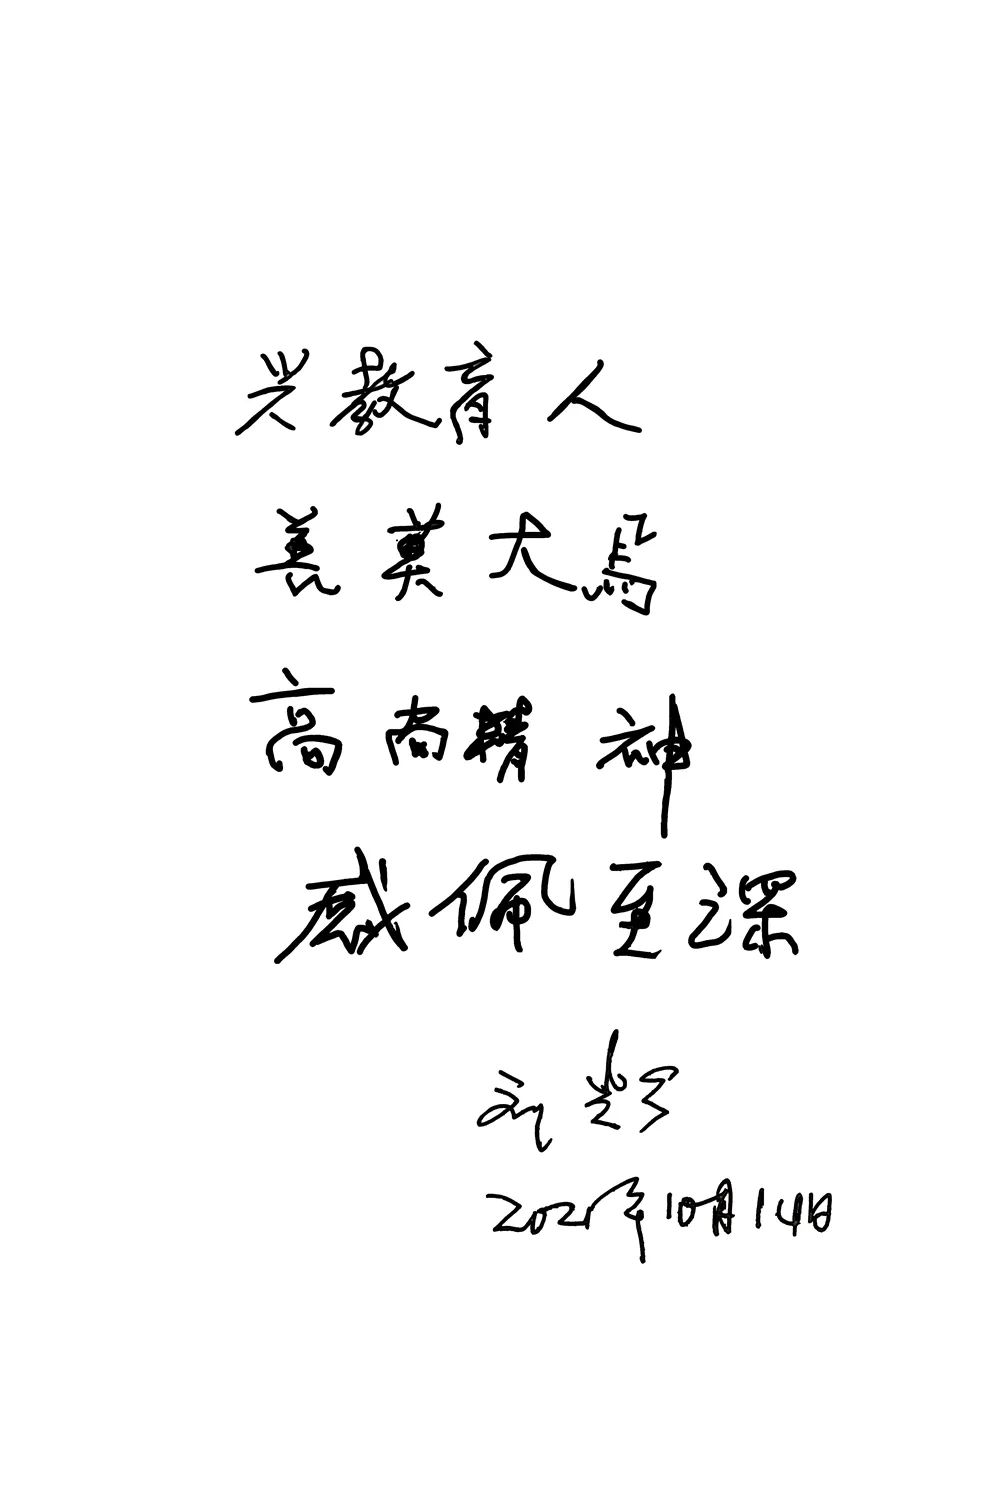 兴教育人
善莫大焉
高尚精神
感佩至深
刘
2021年10月14日